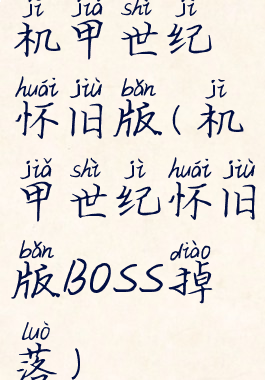 jī jiǎ shì jì
机甲世纪
huái jiù bǎn jī
怀旧版(机
jiǎ shì jì huái jiù
甲世纪怀旧
bǎn diào
版BOSS掉
luò
落)